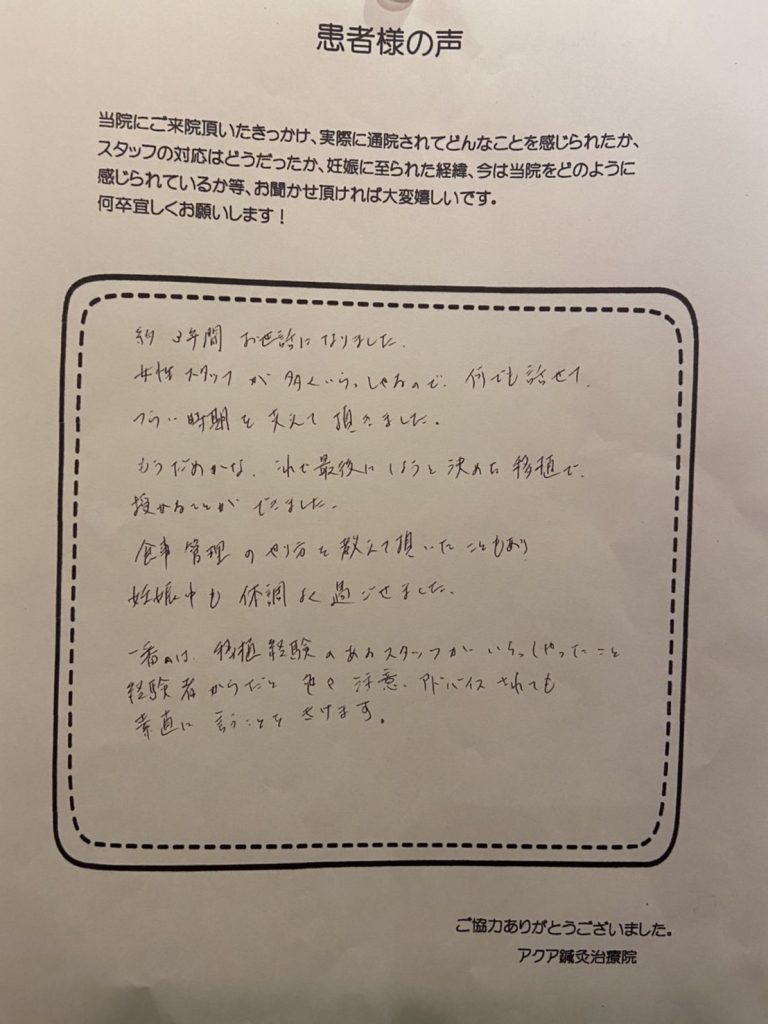 患者様の声
当院にご来院頂いたきっかけ、実際に通院されてどんなことを感じられたか、
スタッフの対応はどうだったか、妊娠に至られた経緯、今は当院をどのように
感じられているか等、お聞かせ頂ければ大変嬉しいです。
何卒宜しくお願いします！
約3年間 お世話になりました。
女性スタッフが多くいらっしゃるので、何でも話せて、
つらい時期を支えて頂きました。
もうだめかな、これで最後にしようと決めた移植で、
授かることができました。
食事管理のやり方を教えて頂いたこともあり
妊娠中も体調よく過ごせました。
一番のは、移植経験のあるスタッフがいらっしゃったこと
経験者からだと色々注意、アドバイスされても
素直に言うことをきけます。
ご協力ありがとうございました。
アクア鍼灸治療院